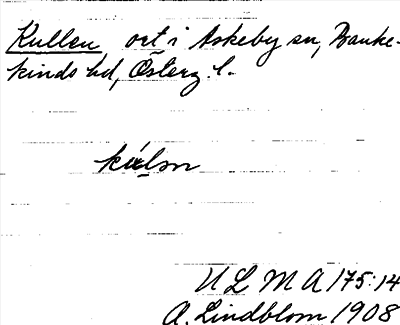 Kullen ort i Askeby sn, Banke-
kinds hd, Österg. l.
U L M A 175:14
A. Lindblom 1908